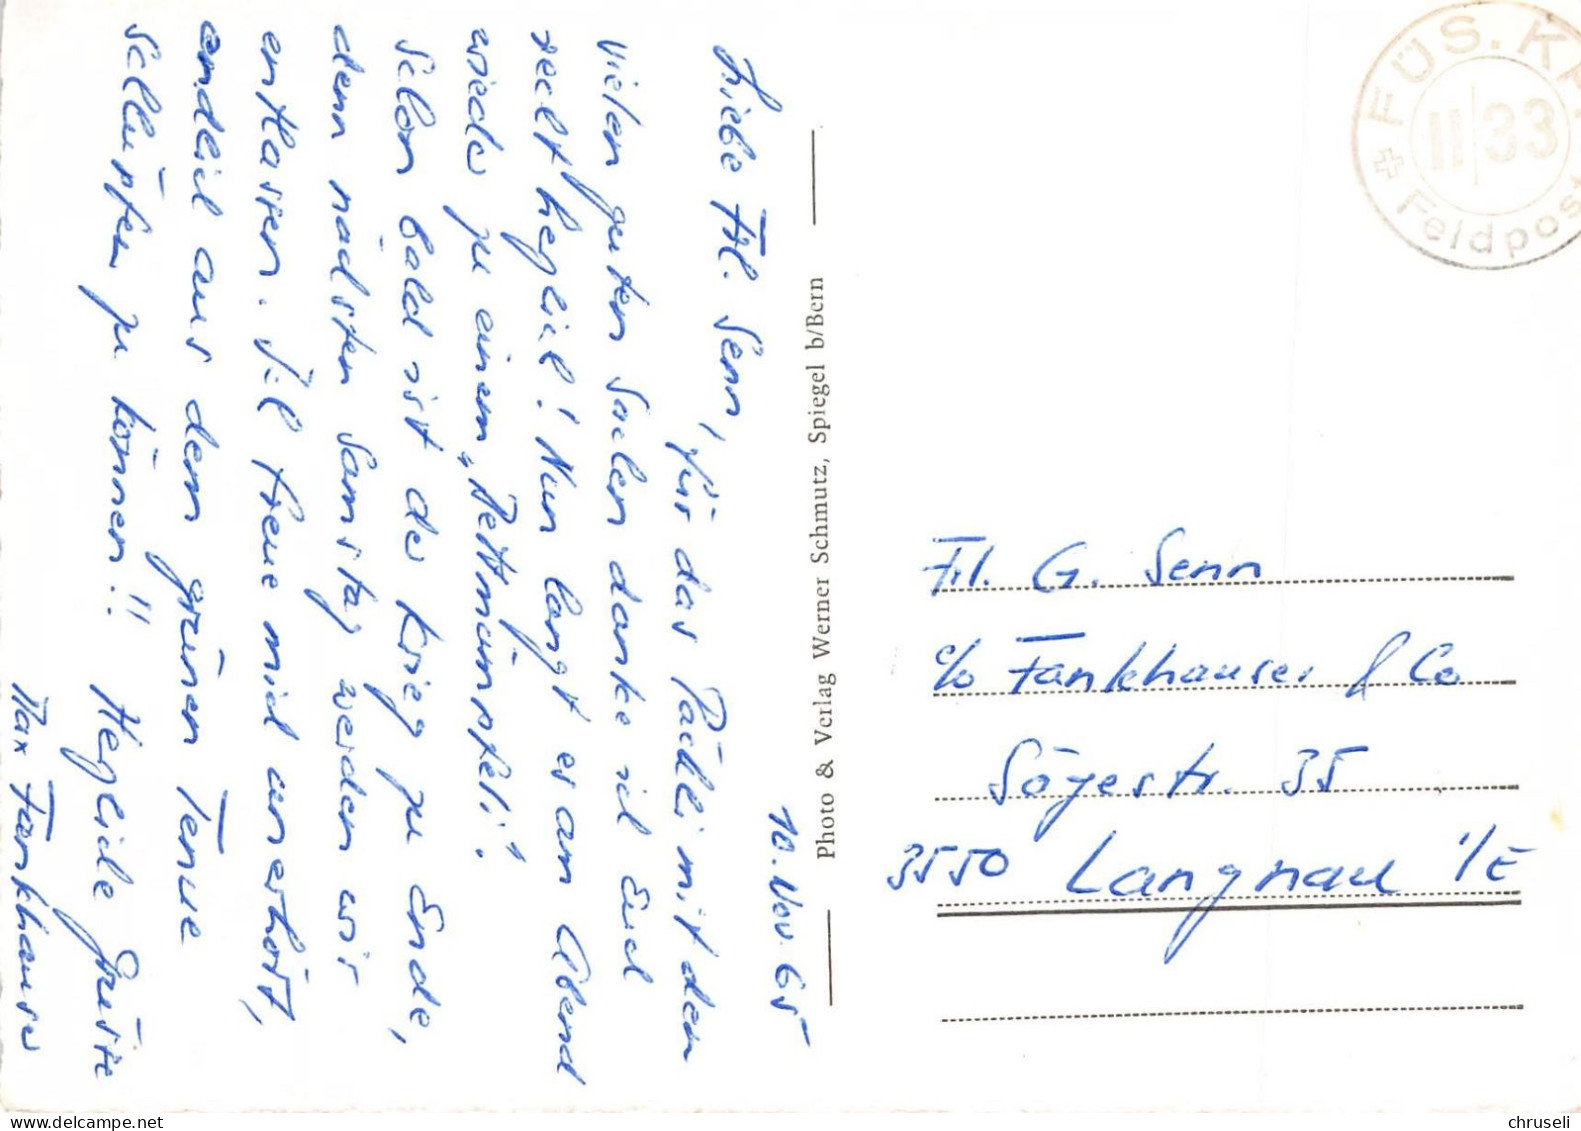 10. Nov. 65
Liebe Frl. Senn,
für das Päckli mit den
vielen guten Sachen danke ich Euch
recht herzlich! Nun langt es am Abend
wieder zu einem „Bettmümpfeli“.
Schon bald ist der Krieg zu Ende,
denn nächsten Samstag werden wir
entlassen. Ich freue mich unerhört,
endlich aus dem grünen Tenue
schlüpfen zu können!! Herzliche Grüsse
Max Fankhauser
Photo & Verlag Werner Schmutz, Spiegel b/Bern
FÜS. KP.
II/33
Feldpost
Frl. G. Senn
c/o Fankhauser & Co
Sägestr. 35
3550 Langnau i/E
chruseli